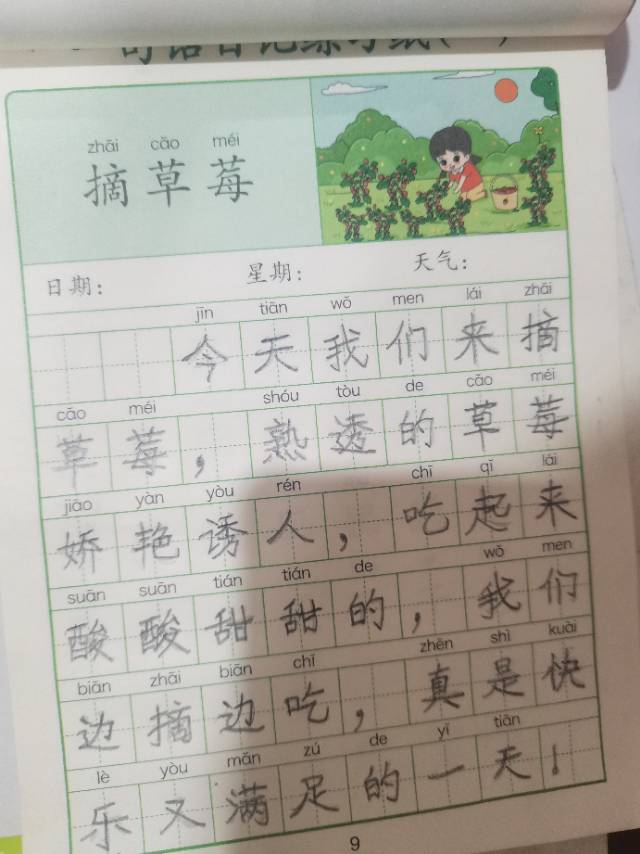 zhāi cǎo méi
摘草莓
日期： 星期： 天气：
jīn tiān wǒ men lái zhāi
今天我们来摘
cǎo méi shóu tòu de cǎo méi
草莓，熟透的草莓
jiāo yàn yòu rén chī qǐ lái
娇艳诱人，吃起来
suān suān tián tián de wǒ men
酸酸甜甜的，我们
biān zhāi biān chī zhēn shì kuài
边摘边吃，真是快
lè yòu mǎn zú de yī tiān
乐又满足的一天！
9